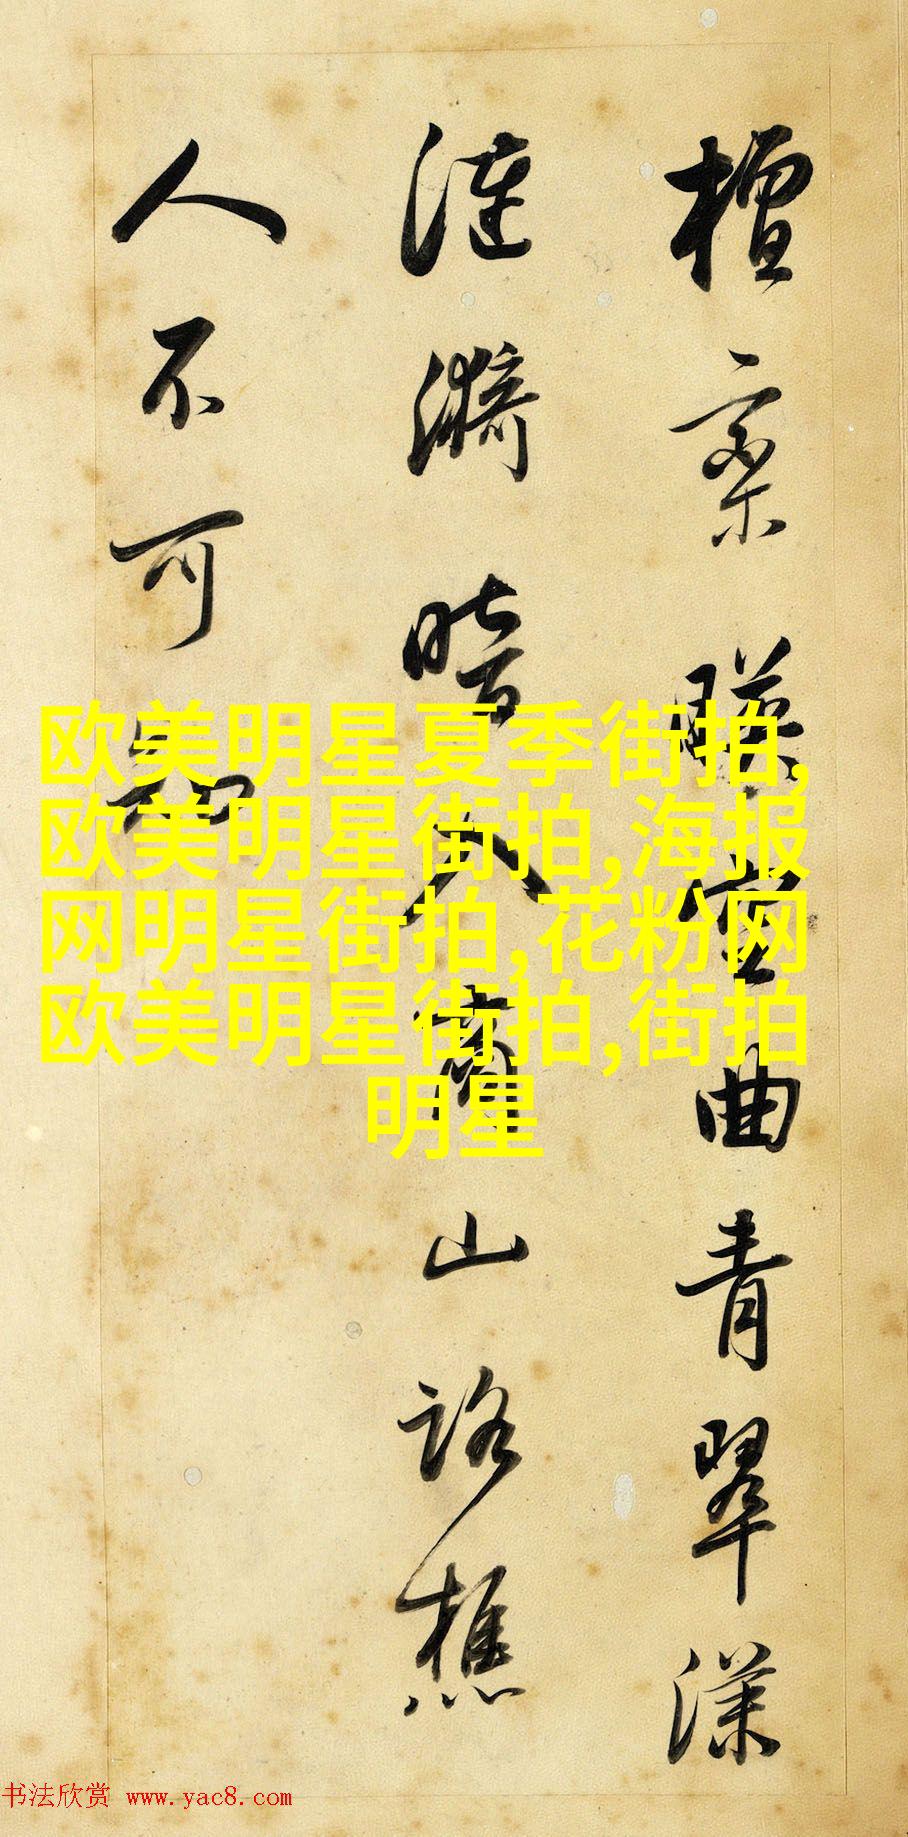 檀欒暎空曲青翠漾
漣漪暗入商山路樵
人不可知
欧美明星夏季街拍,
欧美明星街拍,海报
网明星街拍,花粉网
欧美明星街拍,街拍
明星
书法欣赏 www.yac8.com